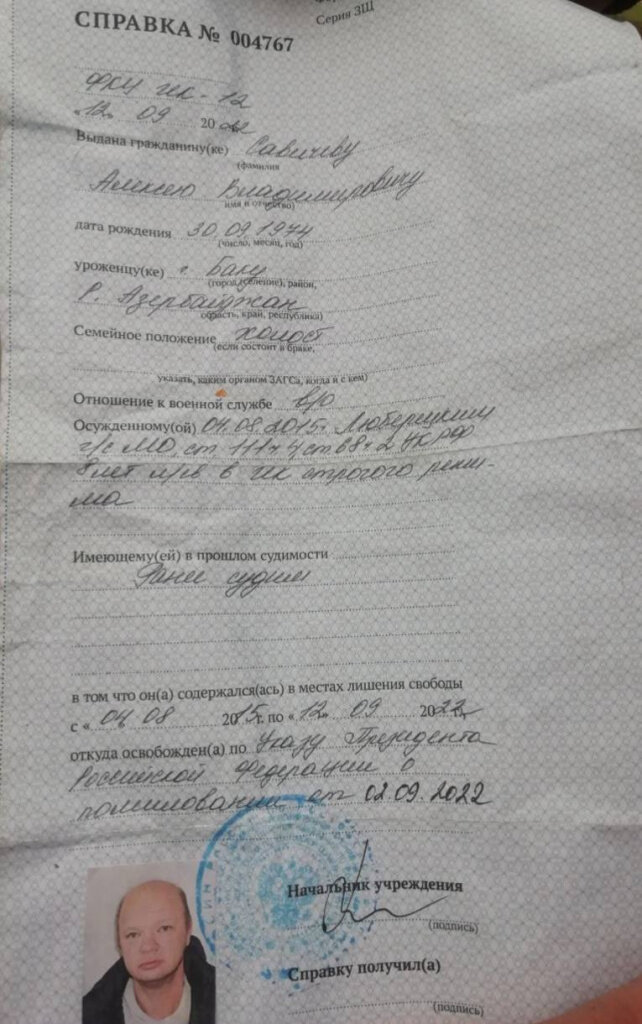 Серия ЗЩ
СПРАВКА № 004767
ФКУ ИК - 12
"12" 09 2022
Выдана гражданину(ке) Савичеву
(фамилия
Алексею Владимировичу
имя и отчество)
дата рождения 30.09.1974
(число, месяц, год)
уроженцу(ке) г. Баку
(город (селение), район,
Р. Азербайджан
область, край, республика)
Семейное положение холост
(если состоит в браке,
указать, каким органом ЗАГСа, когда и с кем)
Отношение к военной службе в/о
Осужденному(ой) 04.08.2015г. Люберецким
г/с МО, ст. 111 ч 4 ст 68 ч 2 УК РФ
8 лет л/св в ИК строгого режи-
ма
Имеющему(ей) в прошлом судимости
Ранее судим
в том что он(а) содержался(ась) в местах лишения свободы
с « 04 08 2015г. по « 12» 09 2022г,
откуда освобожден(а) по Указу Президента
Российской Федерации о
помиловании от 02.09.2022
Начальник учреждения
(подпись)
Справку получил(а)
(подпись)